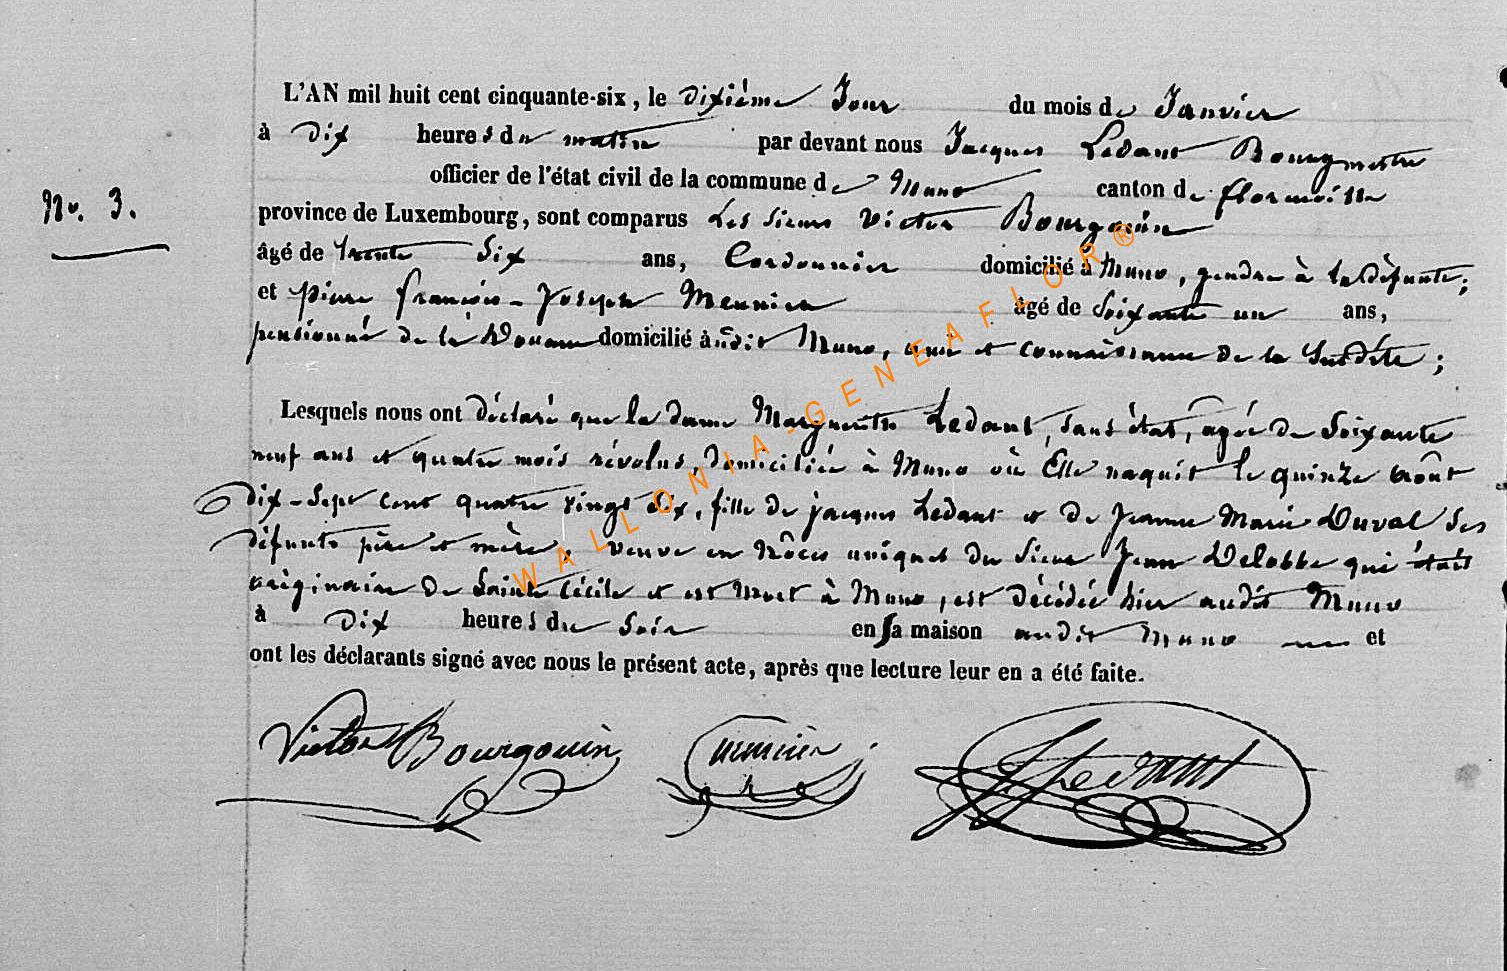 L'AN mil huit cent cinquante-six, le dixième Jour du mois de Janvier
à Dix heures du matin par devant nous Jacques Ledant Bourgmestre
officier de l'état civil de la commune de Muno canton de florenville
No. 3.
province de Luxembourg, sont comparus Les Sieurs Victor Bourgouin
âgé de trente Six ans, Cordonnier domicilié à Muno, gendre à la Défunte;
et pierre françois-Joseph Meunier âgé de Soixante un ans,
pensionné de la Douane domicilié à udit Muno, ami et connaissance de la Susdite;
Lesquels nous ont déclaré que la dame Marguerite Ledant, sans état, agée de Soixante
neuf ans et quatre mois révolus, domiciliée à Muno où Elle naquit le quinze août
dix-Sept cent quatre vingt six, fille de jacques Ledant et de Jeanne Marie Duval Ses
défunts père et mère, veuve en nôces uniques du Sieur Jean Delobbe qui était
originaire de Sainte Cécile et est Mort à Muno, est décédée hier audit Muno
à Dix heures du Soir en Sa maison audit Muno et
ont les déclarants signé avec nous le présent acte, après que lecture leur en a été faite.
Victor Bourgouin meunier J. Ledant
WALLONIA-GENEAFLOR®